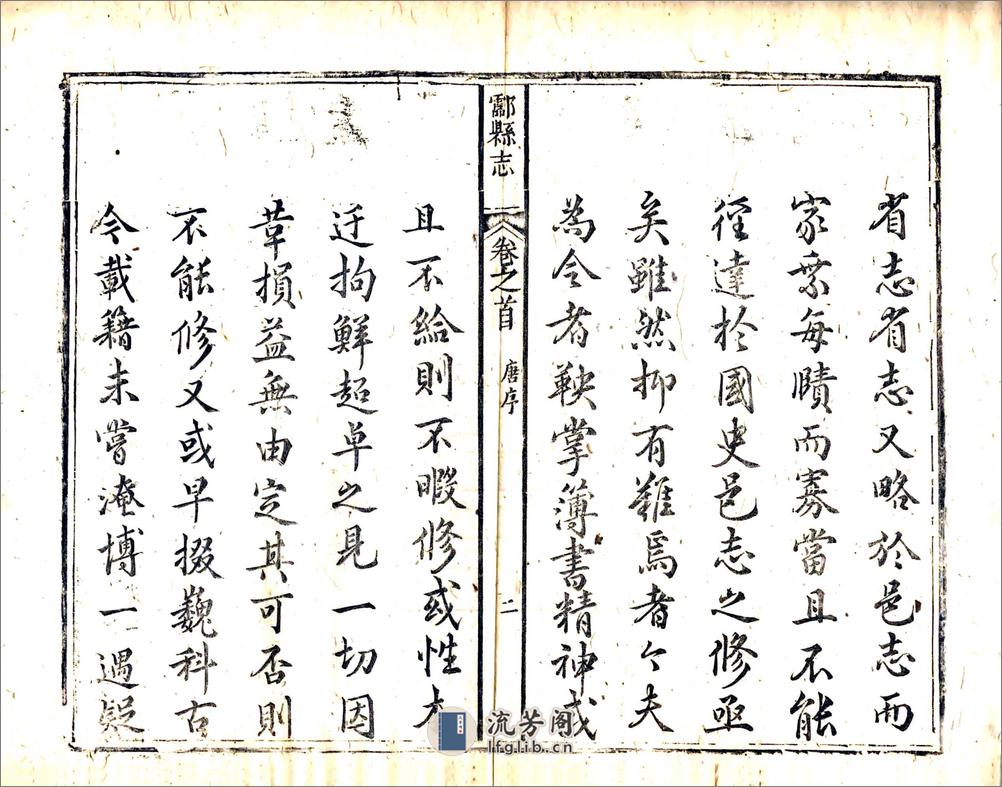 省志省志又略於邑志而
家乘每賾而寡當且不能
徑達於國史邑志之修亟
矣雖然抑有難焉者今夫
為令者鞅掌簿書精神或
酃縣志
卷之首
唐序
二
且不給則不暇修或性太
迂拘鮮超卓之見一切因
革損益無由定其可否則
不能修又或早掇巍科古
今載籍未嘗淹博一遇疑
流芳阁
lfglib.cn